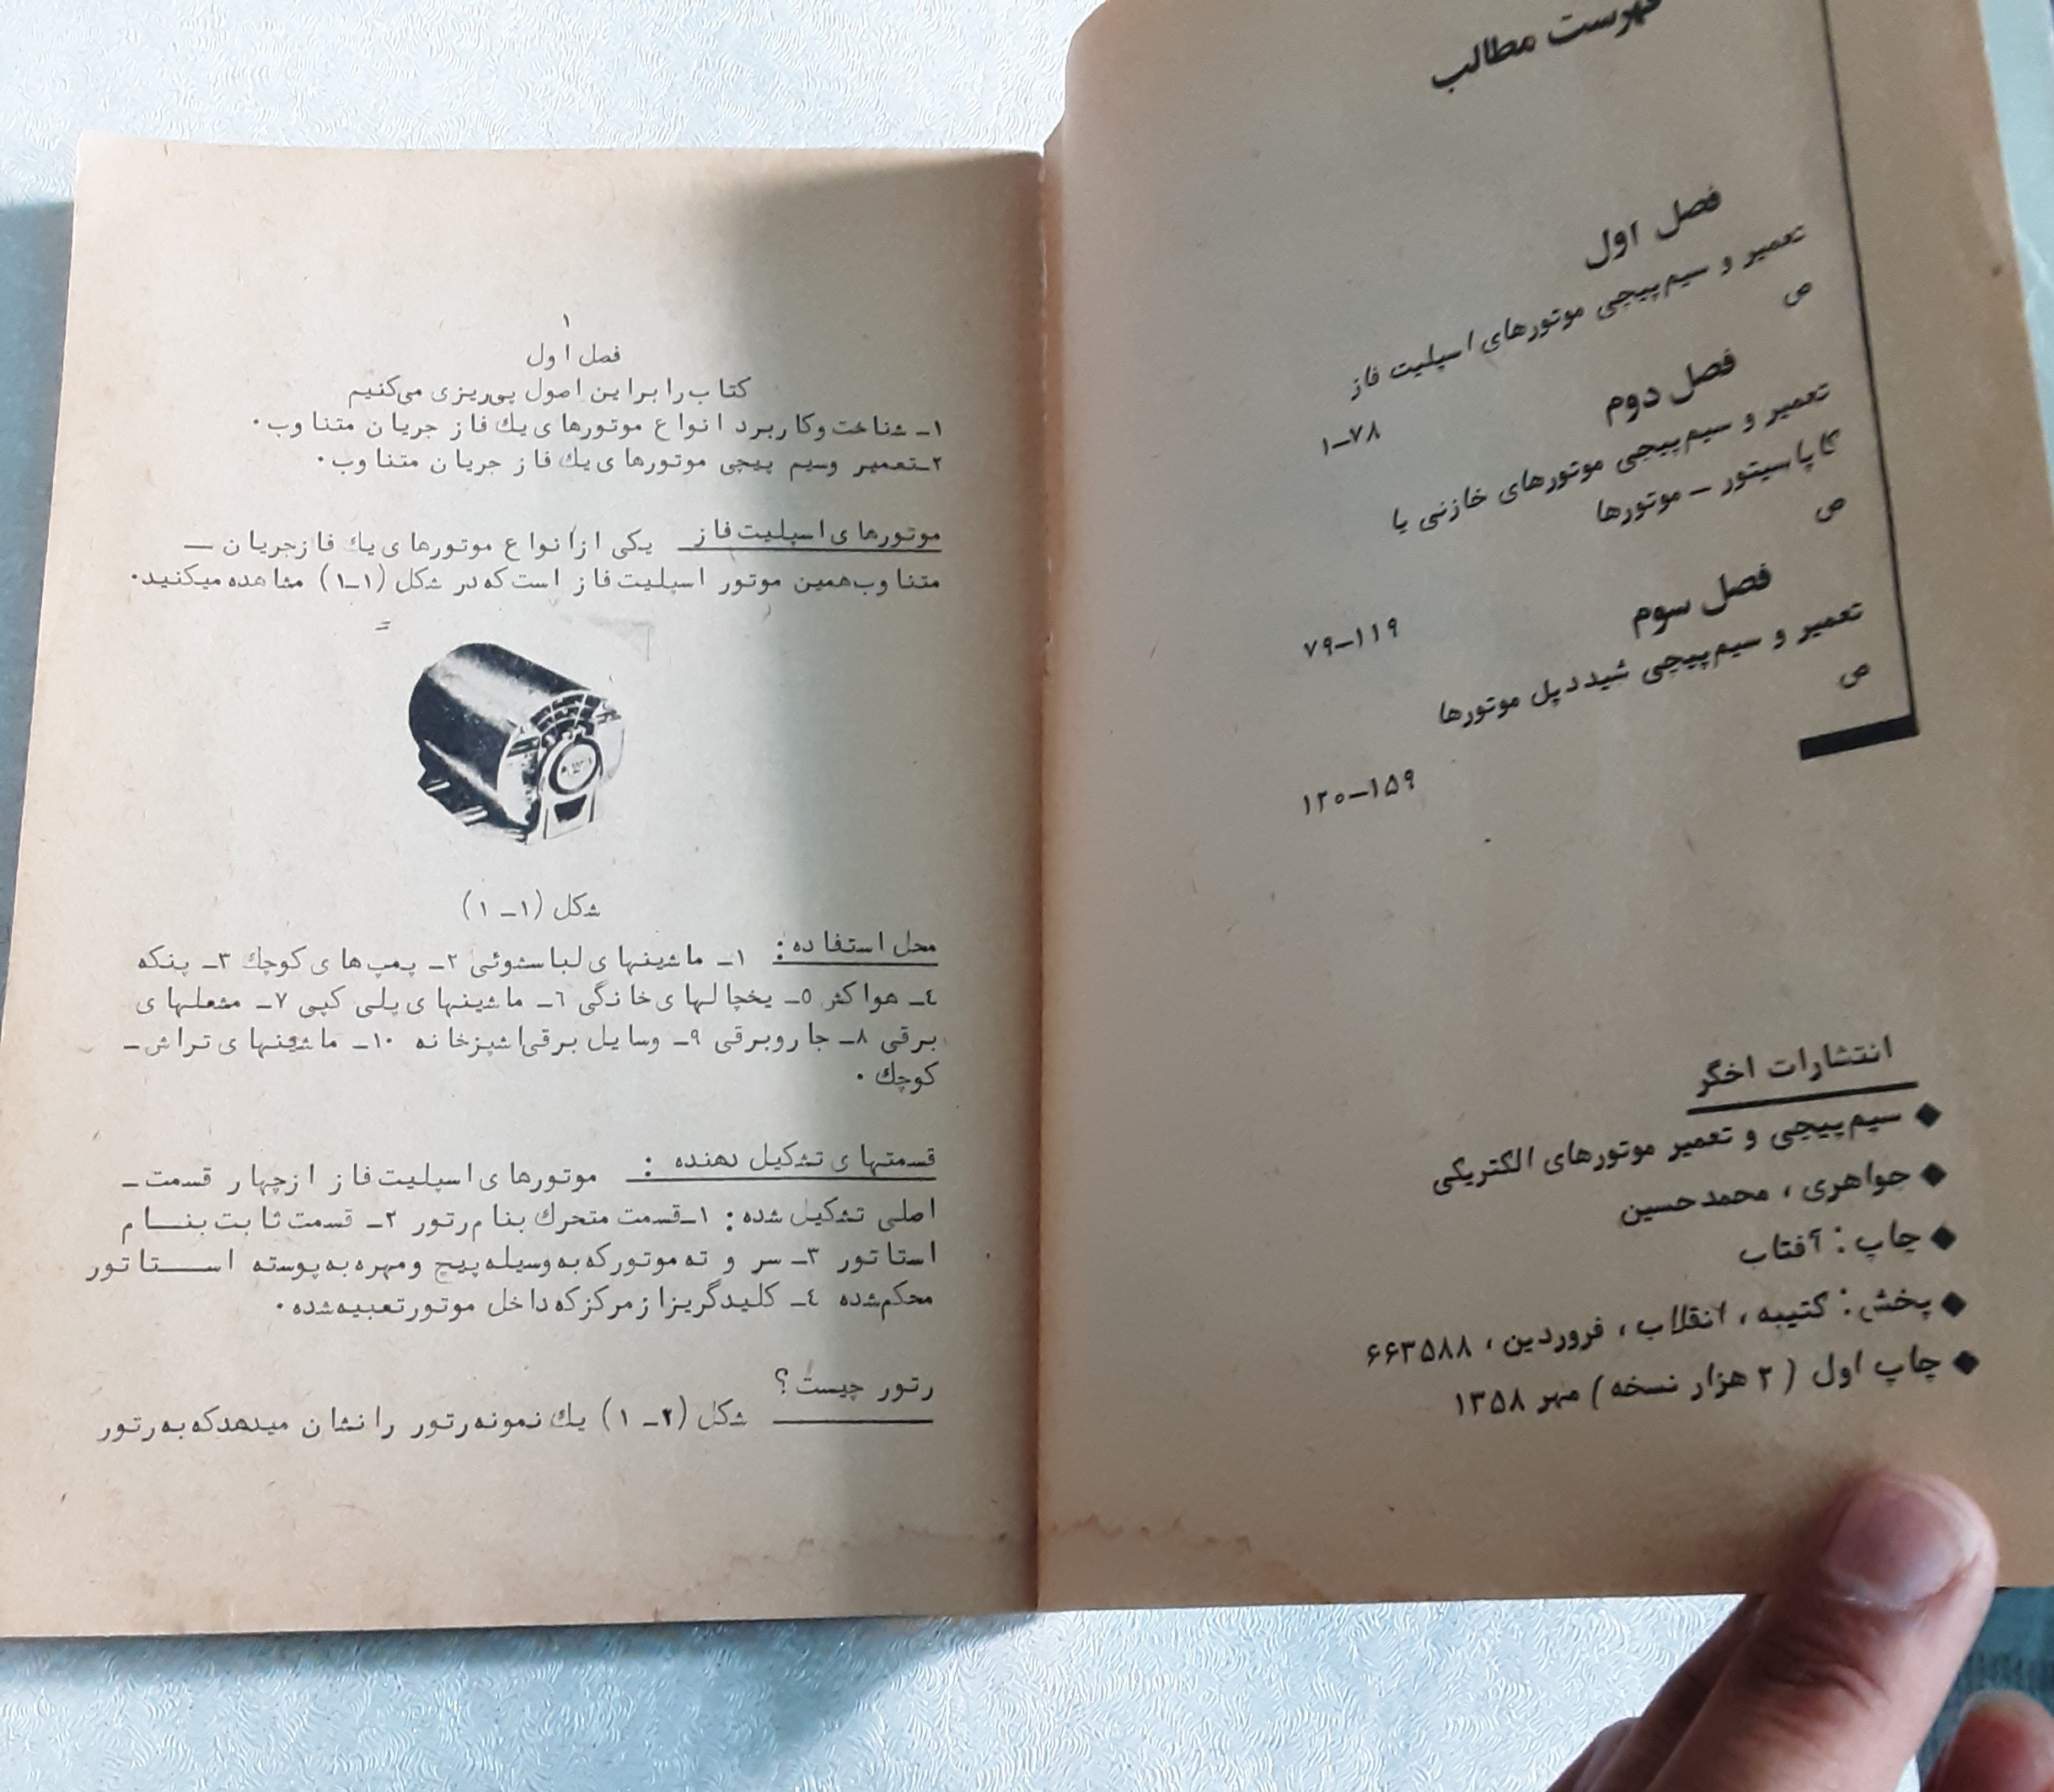 فهرست مطالب
فصل اول
تعمیر و سیم‌پیچی موتورهای اسپلیت فاز
ص ۷۸–۱
فصل دوم
تعمیر و سیم‌پیچی موتورهای خازنی یا
کاپاسیتور – موتورها
ص ۱۱۹–۷۹
فصل سوم
تعمیر و سیم‌پیچی شیددپل موتورها
ص ۱۵۹–۱۲۰
انتشارات اخگر
◆ سیم‌پیچی و تعمیر موتورهای الکتریکی
◆ جواهری ، محمدحسین
◆ چاپ : آفتاب
◆ پخش : کتیبه ، انقلاب ، فروردین ، ۶۶۳۵۸۸
◆ چاپ اول ( ۳ هزار نسخه ) مهر ۱۳۵۸
۱
فصل اول
کتاب را براین اصول پی‌ریزی می‌کنیم
۱ــ شناخت وکاربرد انواع موتورهای یك فاز جریان متناوب.
۲ــتعمیر وسیم پیچی موتورهای یك فاز جریان متناوب.
موتورهای اسپلیت فاز ــ یکی ازانواع موتورهای یك فازجریان ــ
متناوب‌همین موتور اسپلیت فاز است که در شکل (۱ــ۱) مشاهده میکنید.
شکل (۱ــ ۱)
محل استفاده: ۱ــ ماشینهای لباسشوئی ۲ــ پمپ‌های کوچك ۳ــ پنکه
٤ــ هواکش ٥ــ یخچالهای خانگی ٦ــ ماشینهای پلی کپی ۷ــ مشعلهای
برقی ۸ــ جاروبرقی ۹ــ وسایل برقی‌اشپزخانه ۱۰ــ ماشینهای تراش ــ
کوچك .
قسمتهای تشکیل دهنده : موتورهای اسپلیت فاز ازچهار قسمت ــ
اصلی تشکیل شده: ۱ــقسمت متحرك بنام‌رتور ۲ــ قسمت ثابت بنــام
استاتور ۳ــ سر و ته موتورکه به‌وسیله‌پیچ ومهره به‌پوسته استاتور
محکم‌شده ٤ــ کلیدگریزازمرکزکه‌داخل موتورتعبیه‌شده.
رتور چیست؟
شکل (۲ــ ۱) یك نمونه‌رتور رانشان میدهدکه به‌رتور